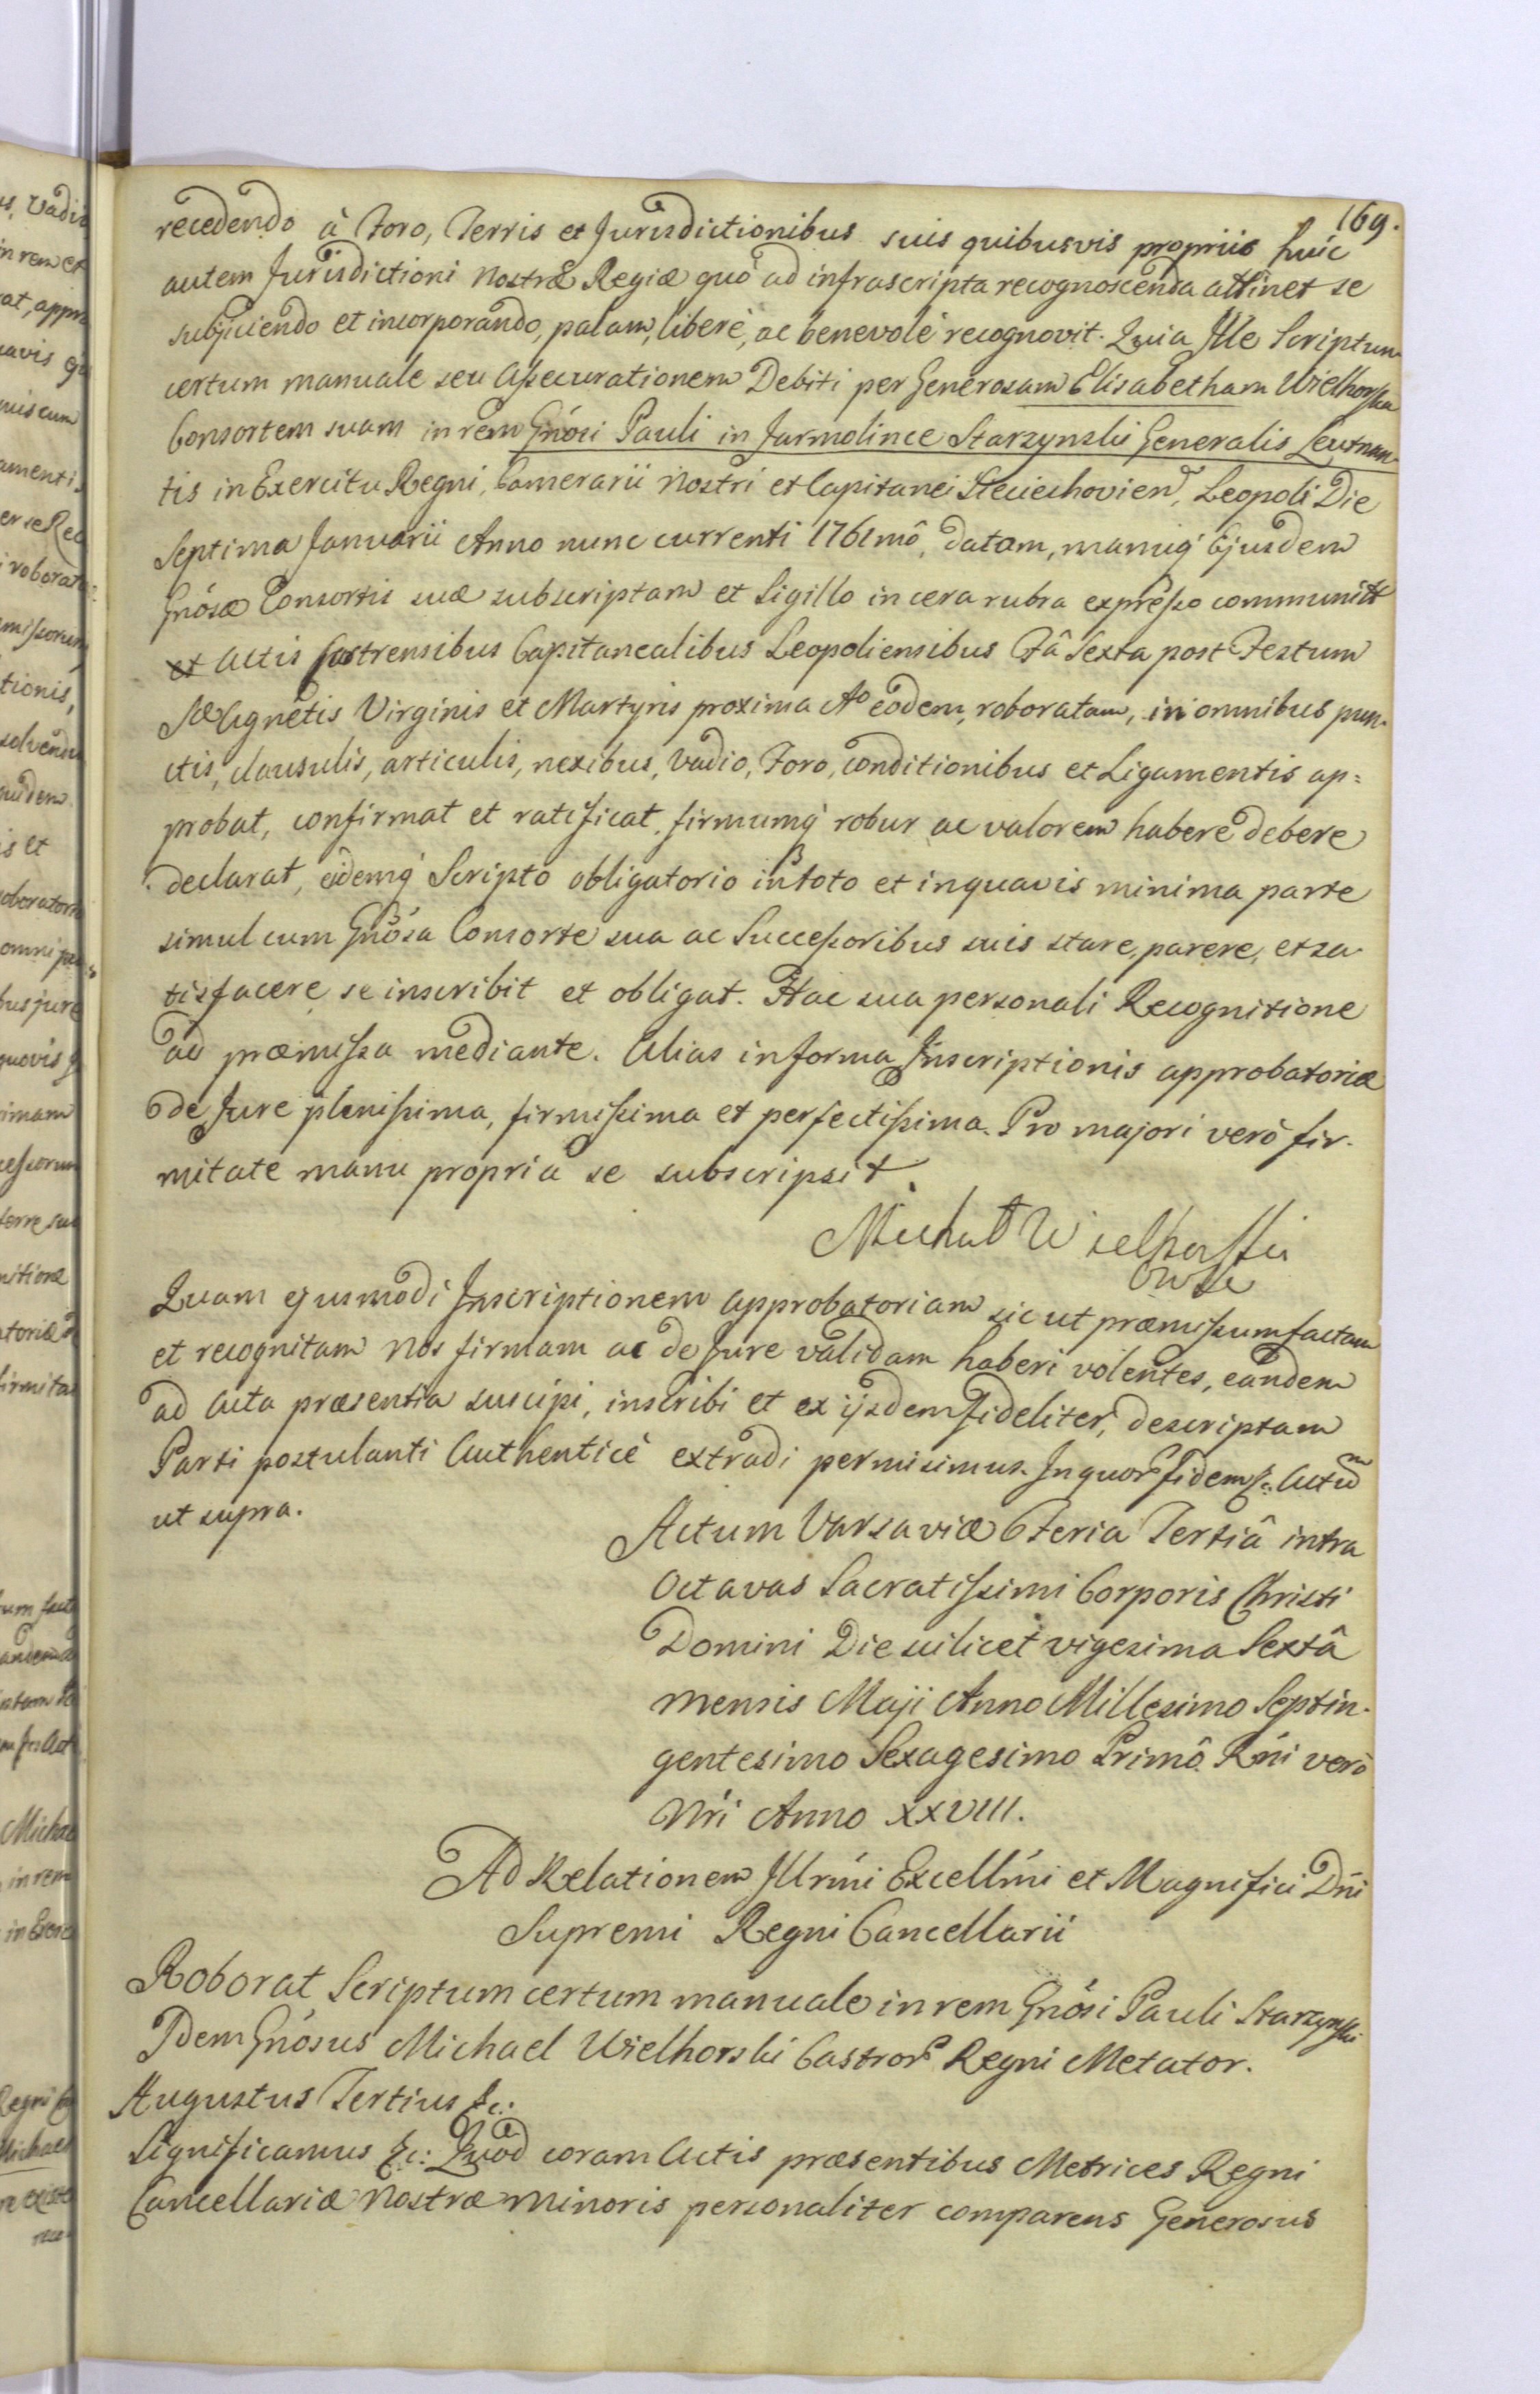 169.
recedendo à Foro, Terris et Jurisdictionibus suis quibusvis propriis huic
autem Jurisdictioni Nostræ Regiæ quò ad infrascripta recognoscenda attinet se
subjiciendo et incorporando, palam, liberè, ac benevolè recognovit. Quia Ille Scriptum
certum manuale seu Assecurationem Debiti per Generosam Elisabetham Wielhorska
Consortem suam in rem Gnósi Pauli in Jarmolince Starzynski Generalis Leutnan-
tis in Exercitu Regni, Camerarii Nostri et Capitanei Steciechovien, Leopoli Die
Septima Januarii Anno nunc currenti 1761mô, datam, manuq́ Ejusdem
Gnósæ Consortis suæ subscriptam et Sigillo in cera rubra expresso communitt
et Actis Castrensibus Capitanealibus Leopoliensibus Fâ Sexta post Festum
Sæ Agnetis Virginis et Martyris proxima Aº eodem, roboratam, in omnibus pun-
ctis, clausulis, articulis, nexibus, Vadio, Foro, conditionibus et Ligamentis ap=
probat, confirmat et ratificat, firmumq́ robur ac valorem habere debere
declarat, eidemq́ Scripto obligatorio in toto et in quavis minima parte
simul cum Gnósa Consorte sua ac Successoribus suis stare, parere, et sa-
tisfacere se inscribit et obligat. Hac sua personali Recognitione
ad præmissa mediante. Alias in forma Inscriptionis approbatoriæ
de Jure plenissima, firmissima et perfectissima. Pro majori verò fir-
mitate manu propria se subscripsit.
Michał Wielhorski
Quam ejusmodi Inscriptionem approbatoriam sic ut præmissum factam
et recognitam Nos firmam ac de Jure validam haberi volentes, eandem
ad Acta præsentia suscipi, inscribi et ex ijsdem fideliter, descriptam
Parti postulanti Authenticè extradi permisimus. In quor̃ fidem &c: Actum
ut supra.
Actum Varsaviæ Feria Tertiâ intra
Octavas Sacratissimi Corporis Christi
Domini Die scilicet vigesima Sextâ
mensis Maji Anno Millesimo Septin-
gentesimo Sexagesimo Primô. Rńi verò
Nŕi Anno XXVIII.
Ad Relationem Illrḿi Excellḿi et Magnifici Dńi
Supremi Regni Cancellarii
Roborat Scriptum certum manuale in rem Gnósi Pauli Starzynski
Idem Gnósus Michael Wielhorski Castror̃ Regni Metator.
Augustus Tertius &c:
Significamus &c: Quod coram Actis præsentibus Metrices Regni
Cancellariæ Nostræ Minoris personaliter comparens Generosus